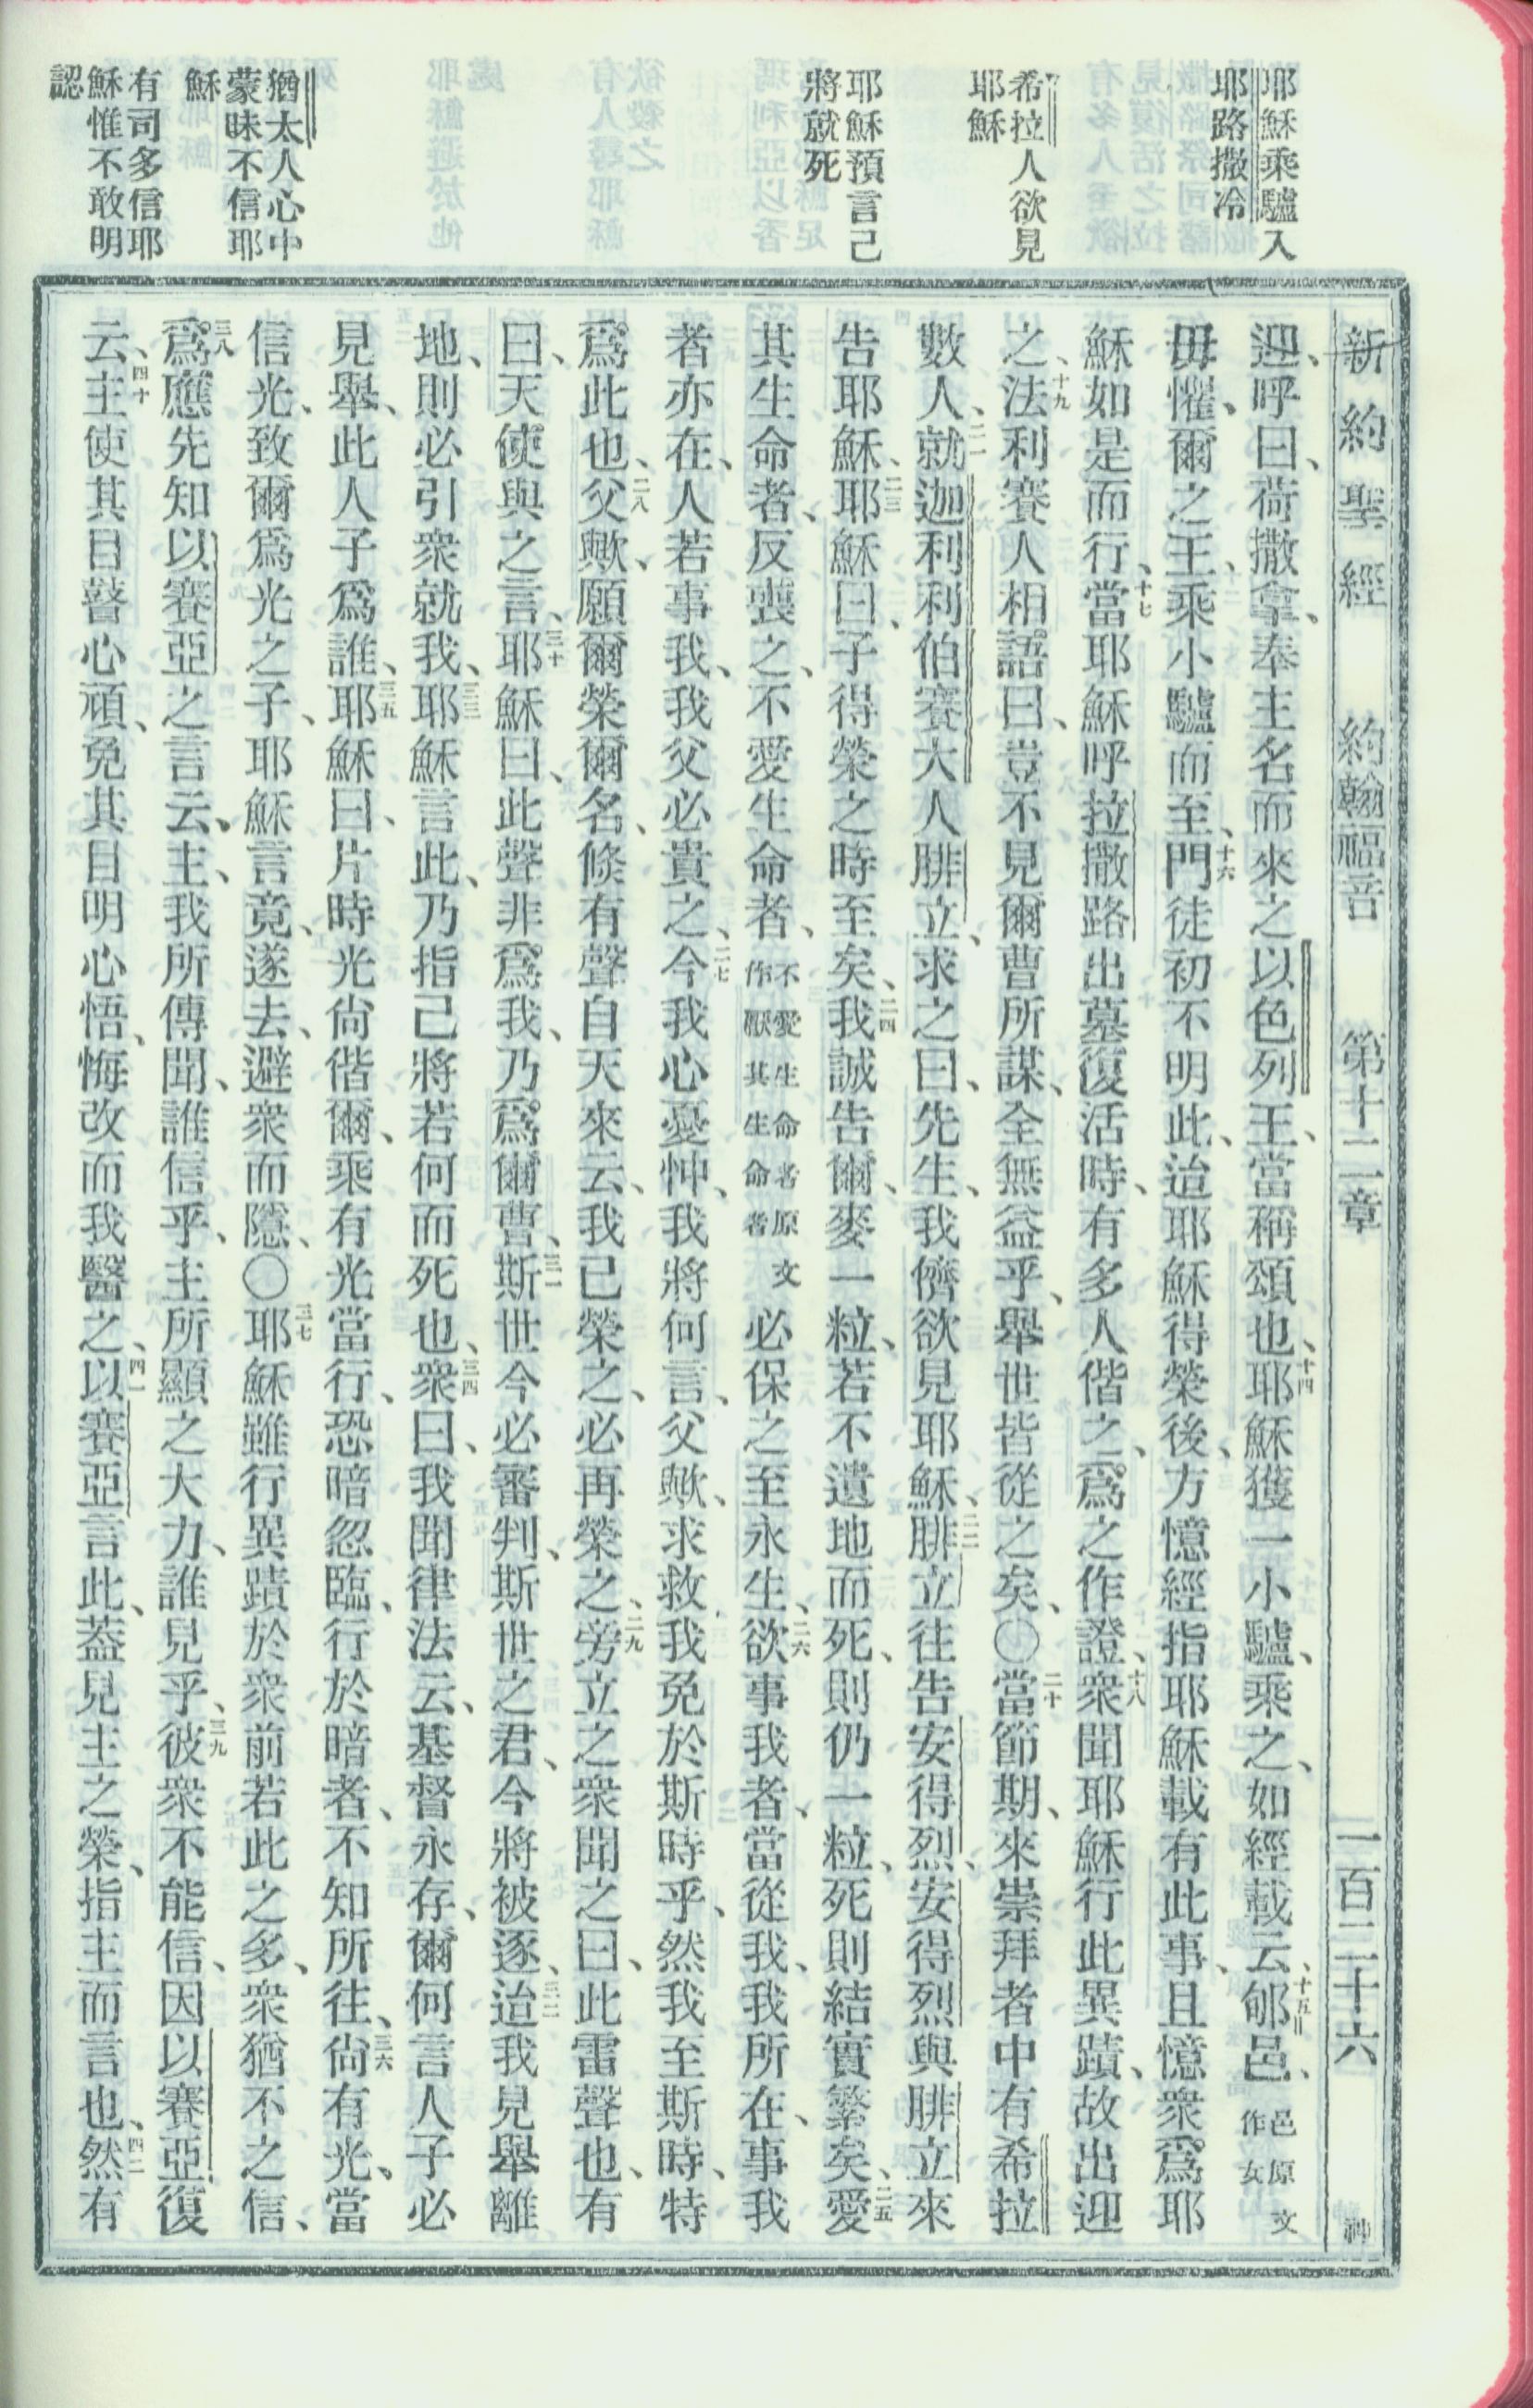 新約聖經 約翰福音 第十二章 一百二十六 神
耶穌乘驢入
耶路撒冷
希拉人欲見
耶穌
耶穌預言己
將就死
猶太人心中
蒙昧不信耶
穌
有司多信耶
穌惟不敢明
認
迎、呼曰、荷撒拿、奉主名而來之以色列王、當稱頌也、十四耶穌獲一小驢、乘之、如經載云、十五郇邑、邑原文作女
毋懼、爾之王、乘小驢而至、十六門徒初不明此、迨耶穌得榮後、方憶經指耶穌載有此事、且憶衆爲耶
穌如是而行、十七當耶穌呼拉撒路出墓復活時、有多人偕之、爲之作證、十八衆聞耶穌行此異蹟、故出迎
之、十九法利賽人相語曰、豈不見爾曹所謀、全無益乎、舉世皆從之矣、〇二十當節期、來崇拜者中有希拉
數人、二一就迦利利伯賽大人腓立、求之曰、先生、我儕欲見耶穌、二二腓立往告安得烈、安得烈與腓立來
告耶穌、二三耶穌曰、子得榮之時至矣、二四我誠告爾、麥一粒、若不遺地而死、則仍一粒、死則結實繁矣、二五愛
其生命者、反喪之、不愛生命者、不愛生命者原文作厭其生命者必保之至永生、二六欲事我者、當從我、我所在、事我
者亦在、人若事我、我父必貴之、二七今我心憂忡、我將何言、父歟、求救我免於斯時乎、然我至斯時、特
爲此也、二八父歟、願爾榮爾名、倐有聲自天來云、我已榮之、必再榮之、二九旁立之衆聞之曰、此雷聲也、有
曰、天使與之言、三十耶穌曰、此聲非爲我、乃爲爾曹、三一斯世今必審判、斯世之君、今將被逐、三二迨我見舉離
地、則必引衆就我、三三耶穌言此、乃指己將若何而死也、三四衆曰、我聞律法云、基督永存、爾何言人子必
見舉、此人子爲誰、三五耶穌曰、片時光尙偕爾、乘有光當行、恐暗忽臨、行於暗者、不知所往、三六尙有光、當
信光、致爾爲光之子、耶穌言竟、遂去、避衆而隱、〇三七耶穌雖行異蹟於衆前若此之多、衆猶不之信、
三八爲應先知以賽亞之言云、主、我所傳聞、誰信乎、主所顯之大力、誰見乎、三九彼衆不能信、因以賽亞復
云、四十主使其目瞽心頑、免其目明心悟、悔改而我醫之、四一以賽亞言此、蓋見主之榮、指主而言也、四二然有